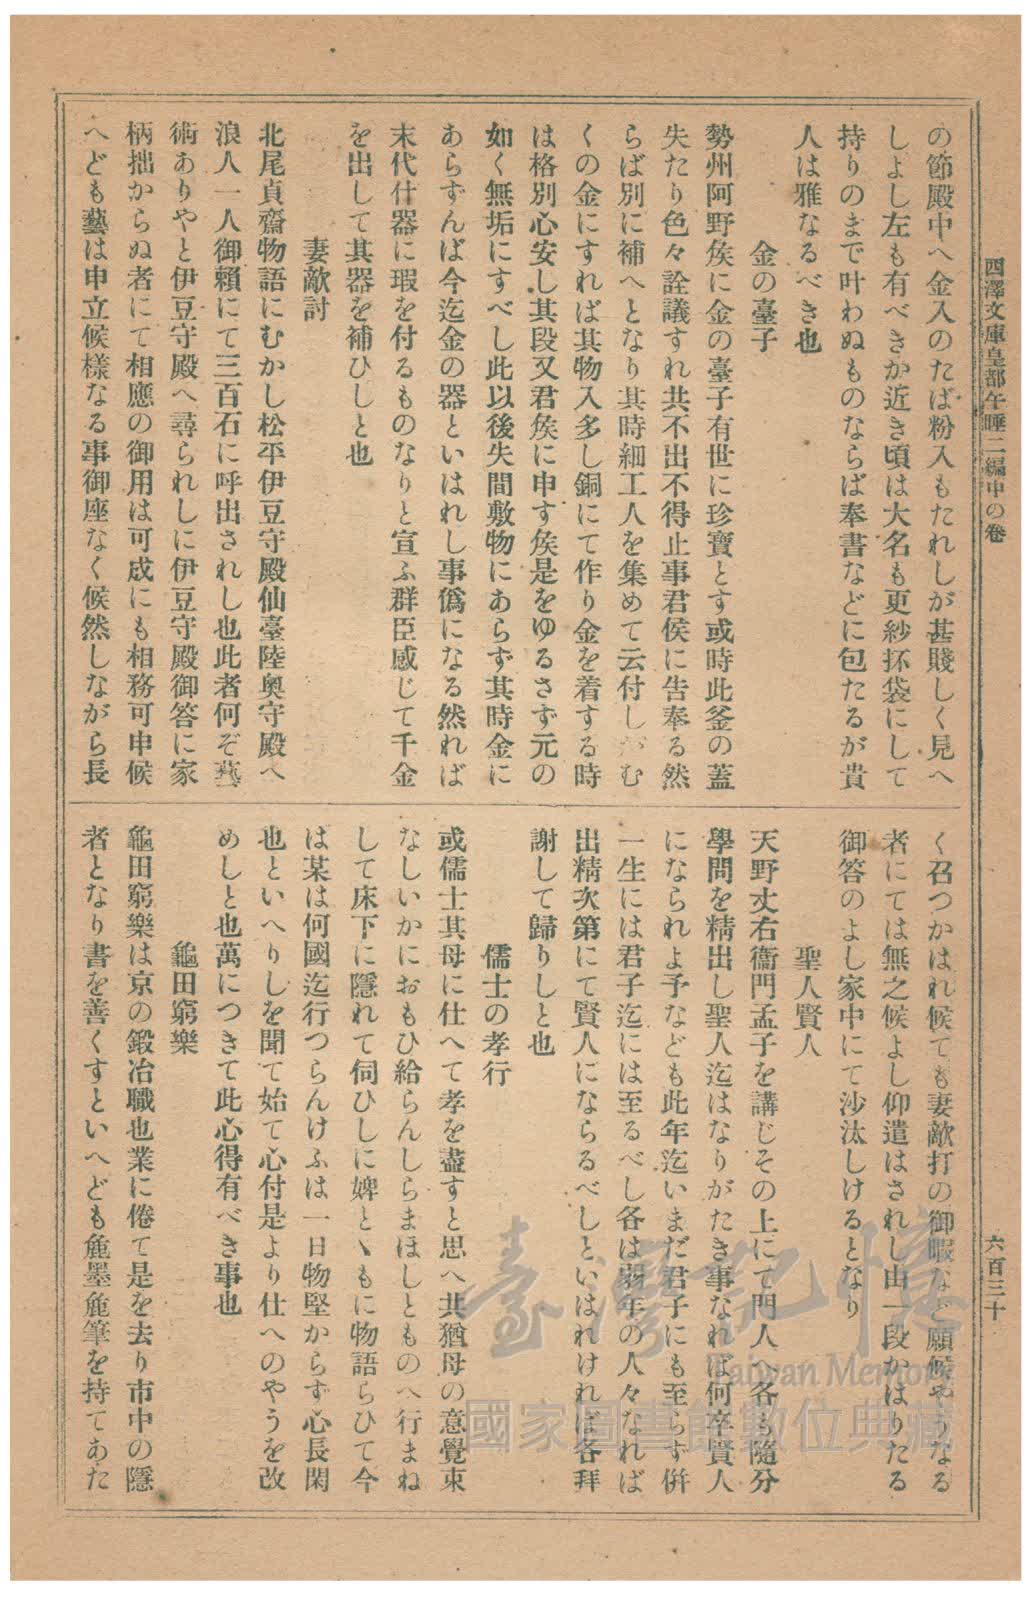 西澤文庫皇都午睡二編中の卷
六百三十
の節殿中へ金入のたば粉入もたれしが甚賤しく見へ
しよし左も有べきか近き頃は大名も更紗抔袋にして
持りのまで叶わぬものならば奉書などに包たるが貴
人は雅なるべき也
金の臺子
勢州阿野矦に金の臺子有世に珍寶とす或時此釜の蓋
失たり色々詮議すれ共不出不得止事君侯に告奉る然
らば別に補へとなり其時細工人を集めて云付しがむ
くの金にすれば其物入多し銅にて作り金を着する時
は格別心安し其段又君矦に申す矦是をゆるさず元の
如く無垢にすべし此以後失間敷物にあらず其時金に
あらずんば今迄金の器といはれし事僞になる然れば
末代什器に瑕を付るものなりと宣ふ群臣感じて千金
を出して其器を補ひしと也
妻敵討
北尾貞齋物語にむかし松平伊豆守殿仙臺陸奥守殿へ
浪人一人御賴にて三百石に呼出されし也此者何ぞ藝
術ありやと伊豆守殿へ尋られしに伊豆守殿御答に家
柄拙からぬ者にて相應の御用は可成にも相務可申候
へども藝は申立候樣なる事御座なく候然しながら長
く召つかはれ候ても妻敵打の御暇など願候やうなる
者にては無之候よし仰遣はされし由一段かはりたる
御答のよし家中にて沙汰しけるとなり
聖人賢人
天野丈右衞門孟子を講じその上にて門人へ各も隨分
學問を精出し聖人迄はなりがたき事なれば何卒賢人
になられよ予なども此年迄いまだ君子にも至らす併
一生には君子迄には至るべし各は弱年の人々なれば
出精次第にて賢人にならるべしといはれければ各拜
謝して歸りしと也
儒士の孝行
或儒士其母に仕へて孝を盡すと思へ共猶母の意覺束
なしいかにおもひ給らんしらまほしとものへ行まね
して床下に隱れて伺ひしに婢とヽもに物語らひて今
は某は何國迄行つらんけふは一日物堅からす心長閑
也といへりしを聞て始て心付是より仕へのやうを改
めしと也萬につきて此心得有べき事也
龜田窮樂
龜田窮樂は京の鍛冶職也業に倦て是を去り市中の隱
者となり書を善くすといへども麁墨麁筆を持てあた
臺灣記憶
Taiwan Memory
國家圖書館數位典藏